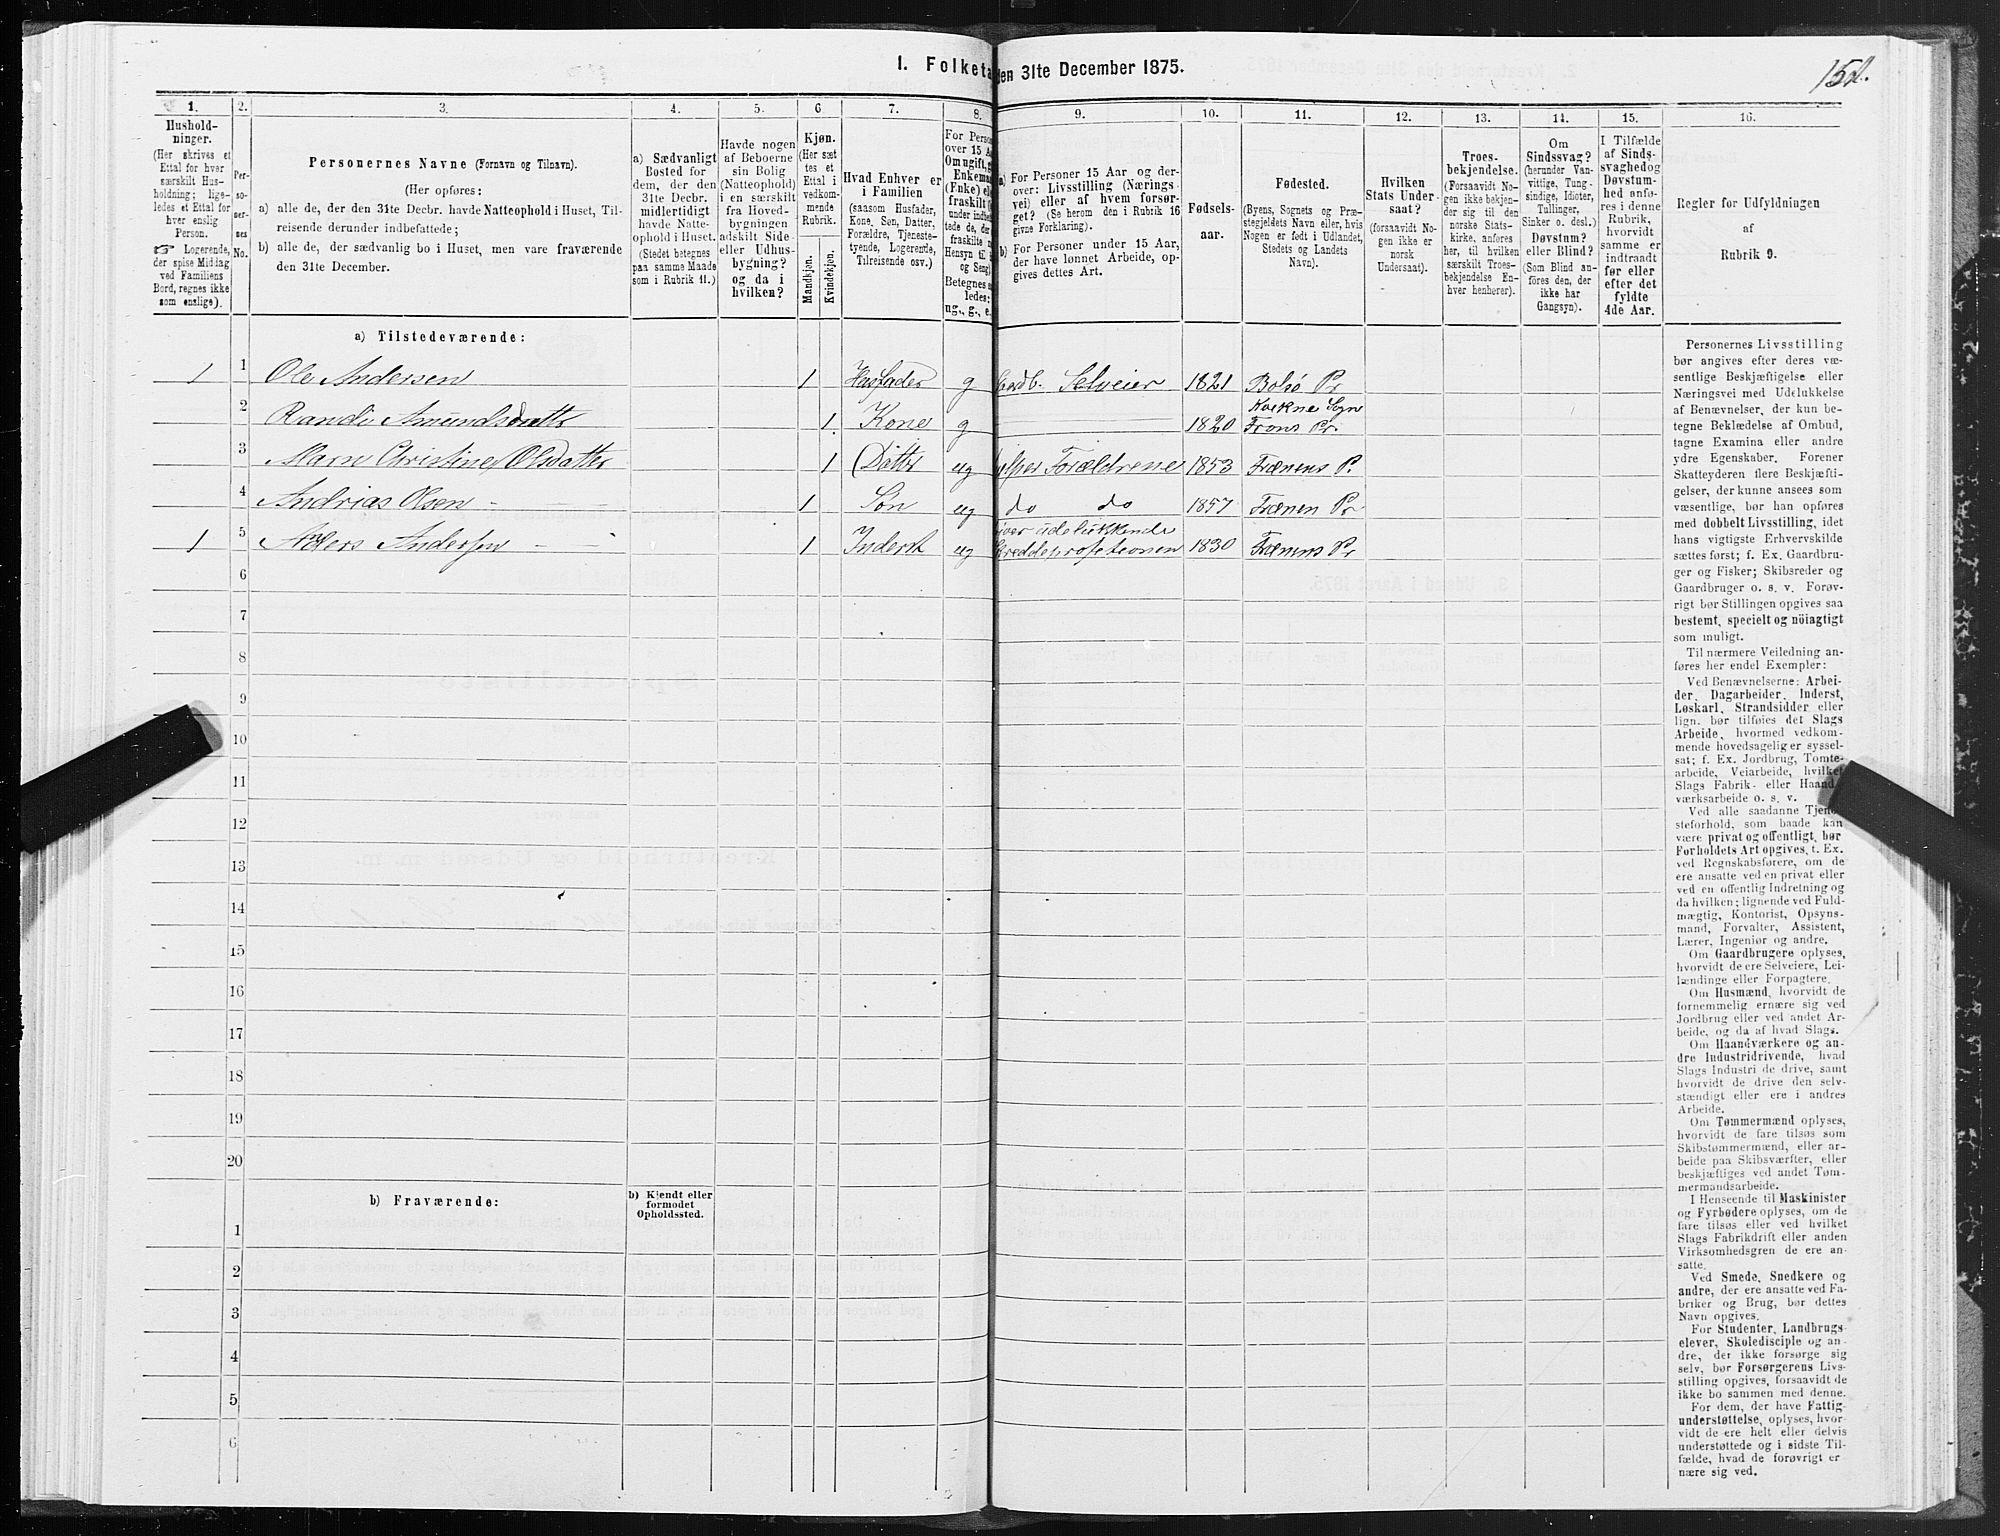 I. Folketa
den 31te December 1875.
1. 2. 3. 4. 5. 6 7. 8. 9. 10. 11. 12. 13. 14. 15. 16.
Hushold-
ninger.
(Her skrives et
Ettal for hver
særskilt Hus-
holdning; lige-
ledes et Ettal for
hver enslig
Person.
☞ Logerende,
der spise Middag
ved Familiens
Bord, regnes ikke
som enslige).
Per-
so-
ner-
nes
No.
Personernes Navne (Fornavn og Tilnavn).
(Her opføres:
a) alle de, der den 31te Decbr. havde Natteophold i Huset, Til-
reisende derunder indbefattede;
b) alle de, der sædvanlig bo i Huset, men vare fraværende
den 31te December.
a) Sædvanligt
Bosted for
dem, der den
31te Decbr.
midlertidigt
havde Natte-
ophold i Huset.
(Stedet betegnes
paa samme Maade
som i Rubrik 11.)
Havde nogen
af Beboerne
sin Bolig
(Natteophold)
i en særskilt
fra Hoved-
bygningen
adskilt Side-
eller Udhus-
bygning?
og da i
hvilken?
Kjøn.
(Her sæt
tes et
Ettal i
vedkom-
mende
Rubrik.
Mandkjøn.
Kvindekjøn.
Hvad Enhver er
i Familien
(saasom Husfader,
Kone, Søn, Datter,
Forældre, Tjeneste-
tyende, Logerende,
Tilreisende osv.)
For Person
over 15 Aa
Om ugift, g
Enkema
(Enke) ell
fraskilt (
under indbe
tede de, der
fraskilte m
Hensyn til
og Seng
Betegnes s
ledes:
ug., g., e.
a) For Personer 15 Aar og der-
over: Livsstilling (Nærings-
vei) eller af hvem forsør-
get? (Se herom den i Rubrik 16
givne Forklaring).
b) For Personer under 15 Aar,
der have lønnet Arbeide, op-
gives dettes Art.
Fødsels-
aar.
Fødested.
(Byens, Sognets og Præ-
stegjeldets Navn eller, hvis
Nogen er født i Udlandet,
Stedets og Landets
Navn).
Hvilken
Stats Under-
saat?
(forsaavidt No-
gen ikke er
norsk
Undersaat).
Troes-
bekjendelse.
(Forsaavidt No-
gen ikke bekjen-
der sig til den
norske Stats-
kirke, anføres
her, til hvilken
særskilt Troes-
bekjendelse En-
hver henhører).
Om
Sindssvag?
(herunder Van-
vittige, Tung-
sindige, Idioter,
Tullinger,
Sinker o. desl.)
Døvstum?
eller Blind?
(Som Blind an-
føres den, der
ikke har
Gangsyn).
I Tilfælde
af Sinds-
svaghed og
Døvstum-
hed anfø-
res i denne
Rubrik,
hvorvidt
samme er
indtraadt
før eller
efter det
fyldte
4de Aar.
Regler for Udfyldningen
af
Rubrik 9.
a) Tilstedeværende:
1 1 Ole Andersen 1 Husfader g Selveier 1821 Bolsø Pr
2 Randi Amundsdatter 1 Kone g 1820 Kvekne Sogn Frons Pr.
3 Marn Christine Olsdatter 1 Datter ug Forældrene 1853 Frænens P.
4 Andrias Olsen 1 Søn ug do do 1857 Frænen Pr
1 5 Anders Andersen 1 Inderst ug udelukkende 1830 Frænens Pr
6
7
8
9
10
11
12
13
14
15
16
17
18
19
20
b) Fraværende:
b) Kjendt eller
formodet
Opholdssted.
1
2
3
4
5
6
Personernes Livsstilling
bør angives efter deres væ-
sentlige Beskjæftigelse eller
Næringsvei med Udelukkelse
af Benævnelser, der kun be-
tegne Beklædelse af Ombud,
tagne Examina eller andre
ydre Egenskaber. Forener
Skatteyderen flere Beskjæfti-
gelser, der kunne ansees som
væsentlige, bør han opføres
med dobbelt Livsstilling, idet
hans vigtigste Erhvervskilde
sættes først; f. Ex. Gaardbru-
ger og Fisker; Skibsreder og
Gaardbruger o. s. v. Forøv-
rigt bør Stillingen opgives saa
bestemt, specielt og nöiagtigt
som muligt.
Til nærmere Veiledning an-
føres her endel Exempler:
Ved Benævnelserne: Arbei-
der, Dagarbeider, Inderst,
Løskarl, Strandsidder eller
lign. bør tilføies det Slags
Arbeide, hvormed vedkom-
mende hovedsagelig er syssel-
sat; f. Ex. Jordbrug, Tomte-
arbeide, Veiarbeide, hvilket
Slags Fabrik- eller Haand-
værksarbeide o. s. v.
Ved alle saadanne Tjene-
steforhold, som baade kan
være privat og offentligt, bør
Forholdets Art opgives, t. Ex.
ved Regnskabsførere, om de
ere ansatte ved en privat eller
ved en offentlig Indretning og
da hvilken; lignende ved Fuld-
mægtig, Kontorist, Opsyns-
mand, Forvalter, Assistent,
Lærer, Ingeniør og andre.
Om Gaardbrugere oplyses,
hvorvidt de ere Selveiere, Lei-
lændinge eller Forpagtere.
Om Husmænd, hvorvidt de
fornemmelig ernære sig ved
Jordbrug eller ved andet Ar-
beide, og da af hvad Slags.
Om Haandværkere og an-
dre Industridrivende, hvad
Slags Industri de drive, samt
hvorvidt de drive den selv-
stændigt eller ere i andres
Arbeide.
Om Tømmermænd oplyses,
hvorvidt de fare tilsøs som
Skibstømmermænd, eller ar-
beide paa Skibsværfter, eller
beskjæftiges ved andet Tøm-
mermandsarbeide.
I Henseende til Maskinister
og Fyrbødere oplyses, om de
fare tilsøs eller ved hvilket
Slags Fabrikdrift eller anden
Virksomhedsgren de ere an-
satte.
Ved Smede, Snedkere og
andre, der ere ansatte ved Fa-
briker og Brug, bør dettes
Navn opgives.
For Studenter, Landbrugs-
elever, Skoledisciple og an-
dre, der ikke forsørge sig
selv, bør Forsørgerens Livs-
stilling opgives, forsaavidt de
ikke bo sammen med denne.
For dem, der have Fattig-
understøttelse, oplyses, hvor-
vidt de ere helt eller delvis
understøttede og i sidste Til-
fælde, hvad de forøvrigt er
nære sig ved.